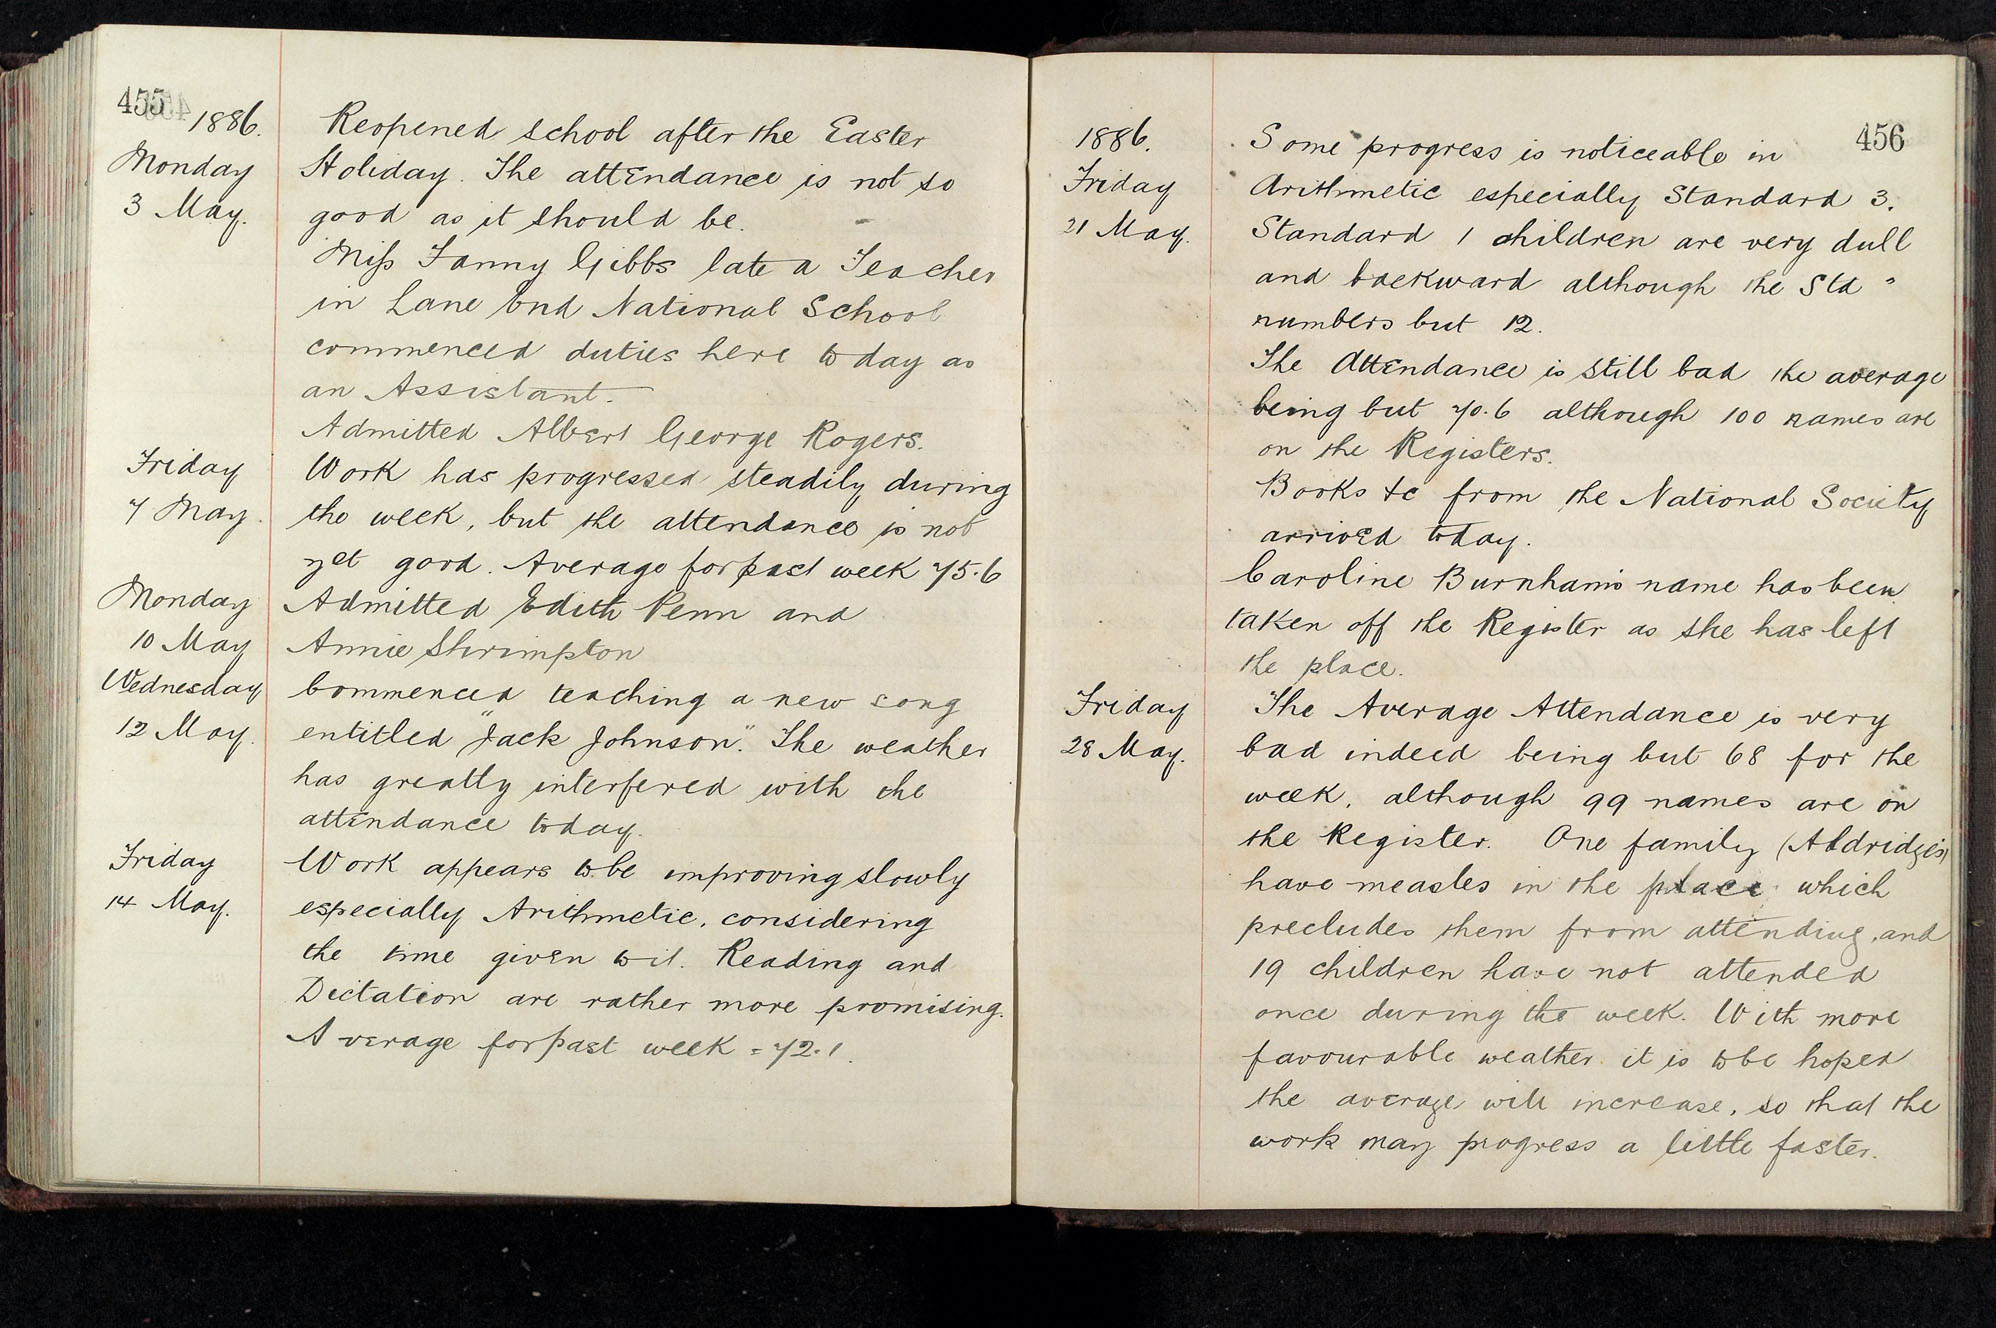 455
1886.
Monday
3 May.
Reopened school after the Easter
Holiday. The attendance is not so
good as it should be.
Miss Fanny Gibbs late a Teacher
in Lane End National School
commenced duties here to day as
an Assistant.
Admitted Albert George Rogers.
Friday
7 May.
Work has progressed steadily during
the week, but the attendance is not
yet good. Average for past week 75.6
Monday
10 May
Admitted Edith Penn and
Annie Shrimpton
Wednesday
12 May.
Commenced teaching a new song
entitled "Jack Johnson". The weather
has greatly interfered with the
attendance today.
Friday
14 May.
Work appears to be improving slowly
especially Arithmetic, considering
the time given to it. Reading and
Dictation are rather more promising.
Average for past week = 72.1.
456
1886.
Friday
21 May.
Some progress is noticeable in
Arithmetic especially Standard 3.
Standard 1 children are very dull
and backward although the Std "
numbers but 12.
The Attendance is still bad the average
being but 70.6 although 100 names are
on the Registers.
Books &c from the National Society
arrived today.
Caroline Burnham's name has been
taken off the Register as she has left
the place.
Friday
28 May.
The Average Attendance is very
bad indeed being but 68 for the
week, although 99 names are on
the Register. One family (Aldridge's)
have measles in the place which
precludes them from attending, and
19 children have not attended
once during the week. With more
favourable weather it is to be hoped
the average will increase, so that the
work may progress a little faster.